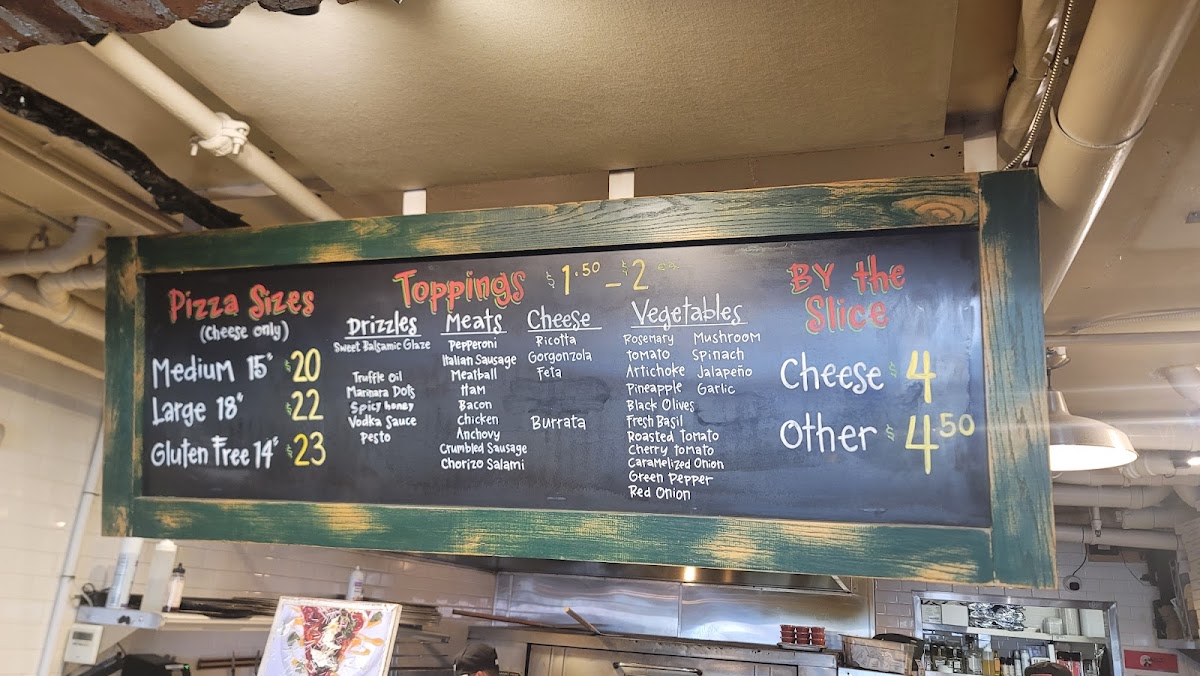 Pizza Sizes
(Cheese only)
Medium 15" $20
Large 18" $22
Gluten Free 14" $23
Toppings $1.50 - $2
Drizzles
Sweet Balsamic Glaze
Truffle Oil
Marinara Dots
Spicy honey
Vodka Sauce
Pesto
Meats
Pepperoni
Italian Sausage
Meatball
Ham
Bacon
Chicken
Anchovy
Crumbled Sausage
Chorizo Salami
Cheese
Ricotta
Gorgonzola
Feta
Burrata
Vegetables
Rosemary
Tomato
Artichoke
Pineapple
Black Olives
Fresh Basil
Roasted Tomato
Cherry Tomato
Caramelized Onion
Green Pepper
Red Onion
Mushroom
Spinach
Jalapeño
Garlic
BY the
Slice
Cheese $4
Other $4.50